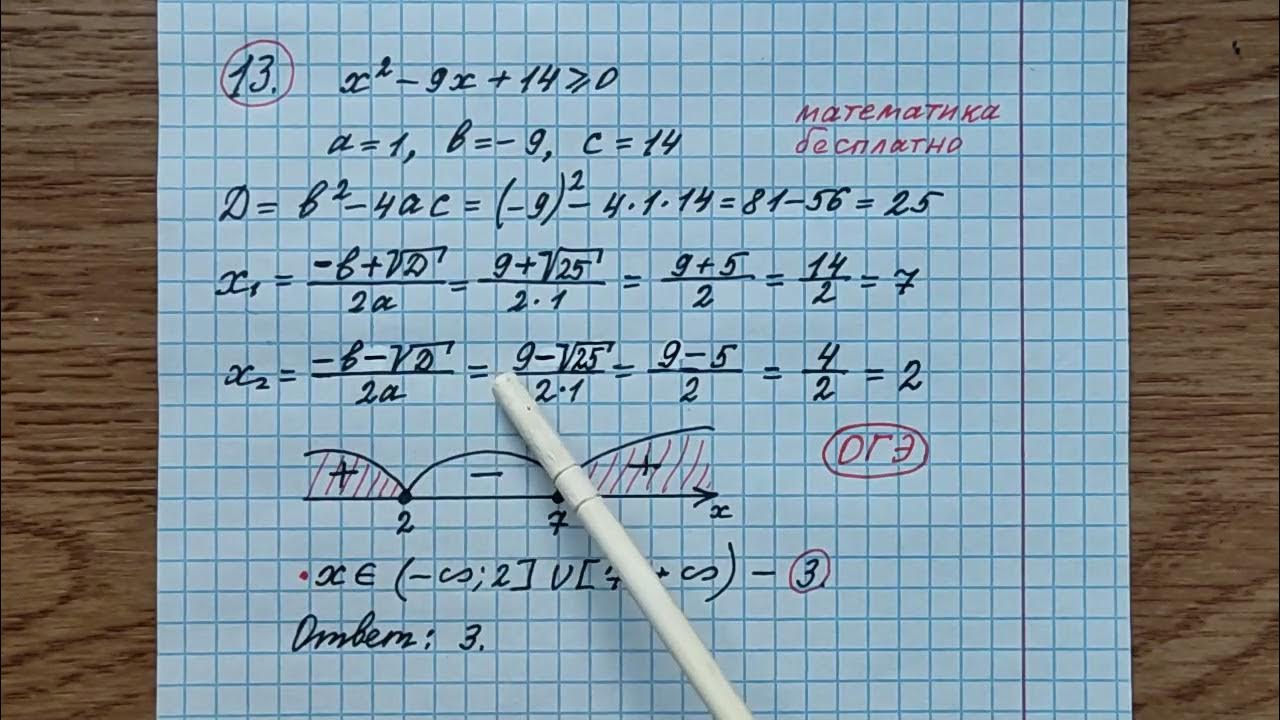 13. x² − 9x + 14 ⩾ 0
математика
бесплатно
a = 1, b = −9, c = 14
D = b² − 4ac = (−9)² − 4·1·14 = 81 − 56 = 25
x₁ = (−b + √D)/(2a) = (9 + √25)/(2·1) = (9 + 5)/2 = 14/2 = 7
x₂ = (−b − √D)/(2a) = (9 − √25)/(2·1) = (9 − 5)/2 = 4/2 = 2
ОГЭ
+ − +
2 7 x
• x ∈ (−∞; 2] ∪ [7 +∞) − 3.
Ответ: 3.